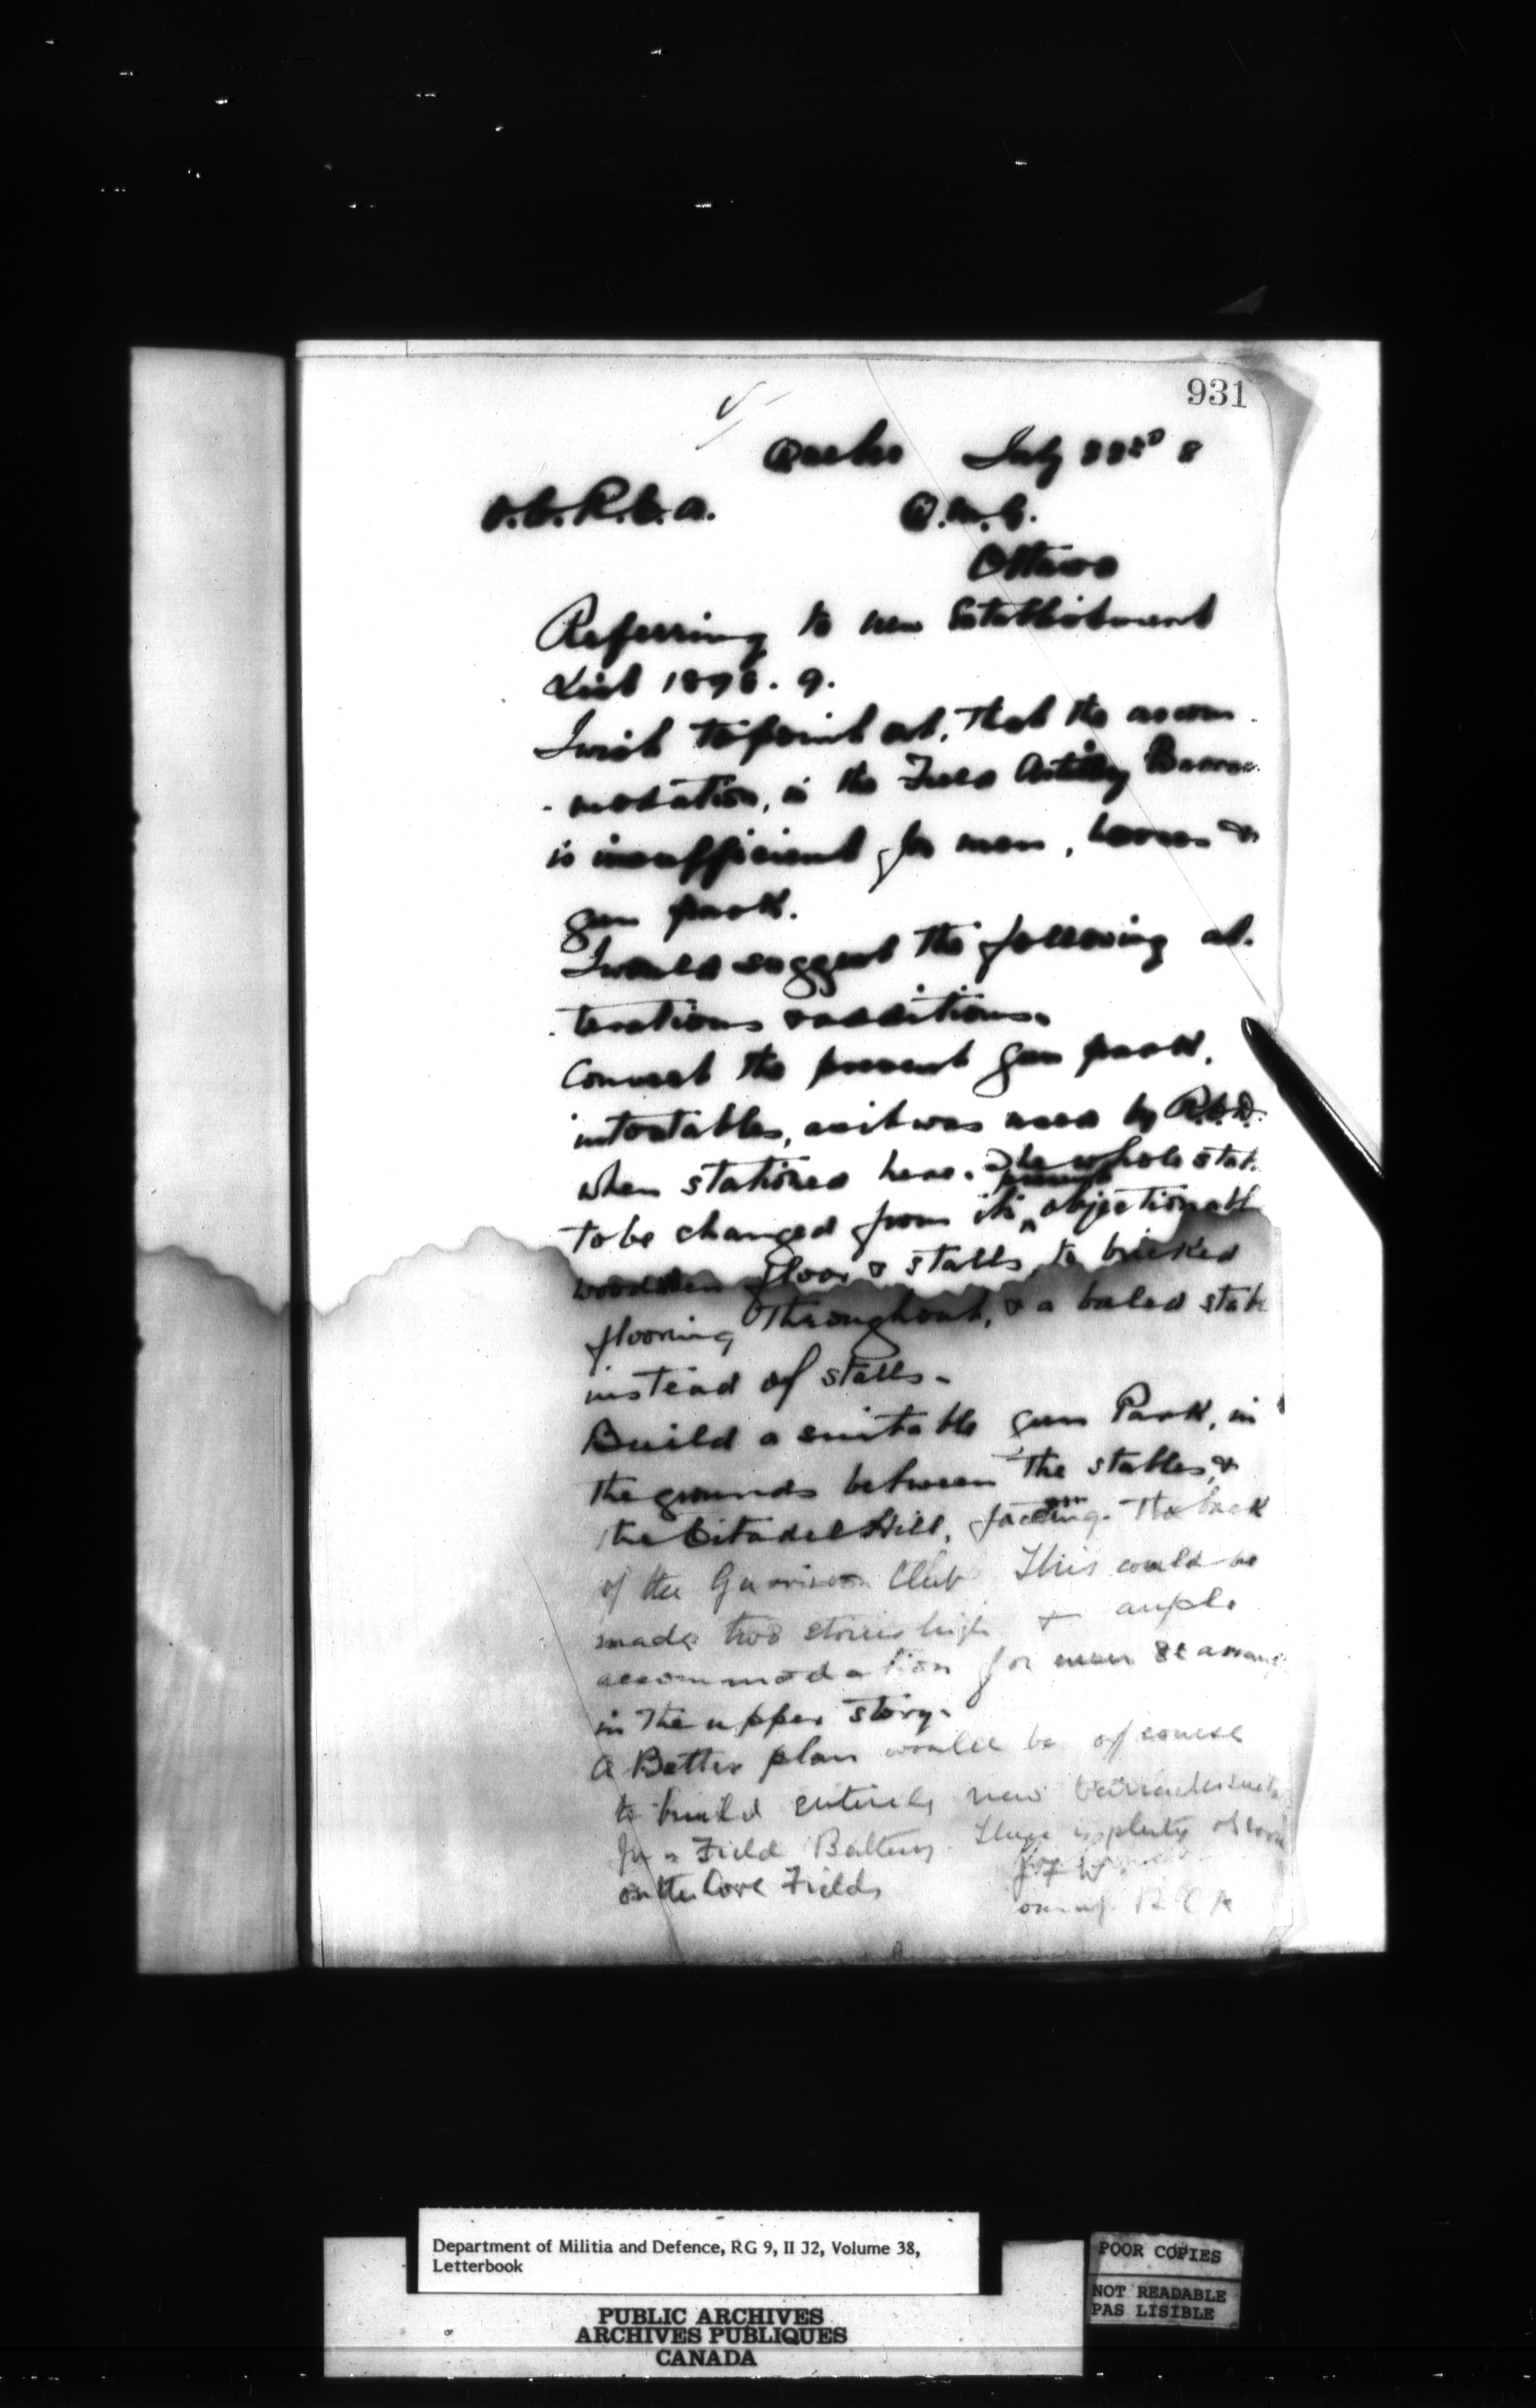 931
Quebec July 22nd 8
O.C.R.C.A. Q.M.G.
Ottawa
Referring to new Establishment
List 1898.9.
I wish to point out, that the accom-
-modation, in the Field Artillery
is insufficient for men, horses &
gun park.
I would suggest the following al-
-terations & additions.
Convert the present gun park,
into stables, as it was used by R.C.D.
when stationed here. The whole
to be changed from its present objectionable
wooden floor & stalls, to bricked
flooring throughout, & a baled
instead of stalls.
Build a suitable gun Park, in
the grounds between the stables, &
the Citadel Hill, facing the back
of the Garrison Club This could be
made two stories high & ample
accommodation for men be
in the upper story.
A Better plan would be of course
to build entirely new barracks
for a Field Battery. There is plenty of room
on the Cove Fields
R C A
Department of Militia and Defence, RG 9, II J2, Volume 38,
Letterbook
PUBLIC ARCHIVES
ARCHIVES PUBLIQUES
CANADA
POOR COPIES
NOT READABLE
PAS LISIBLE